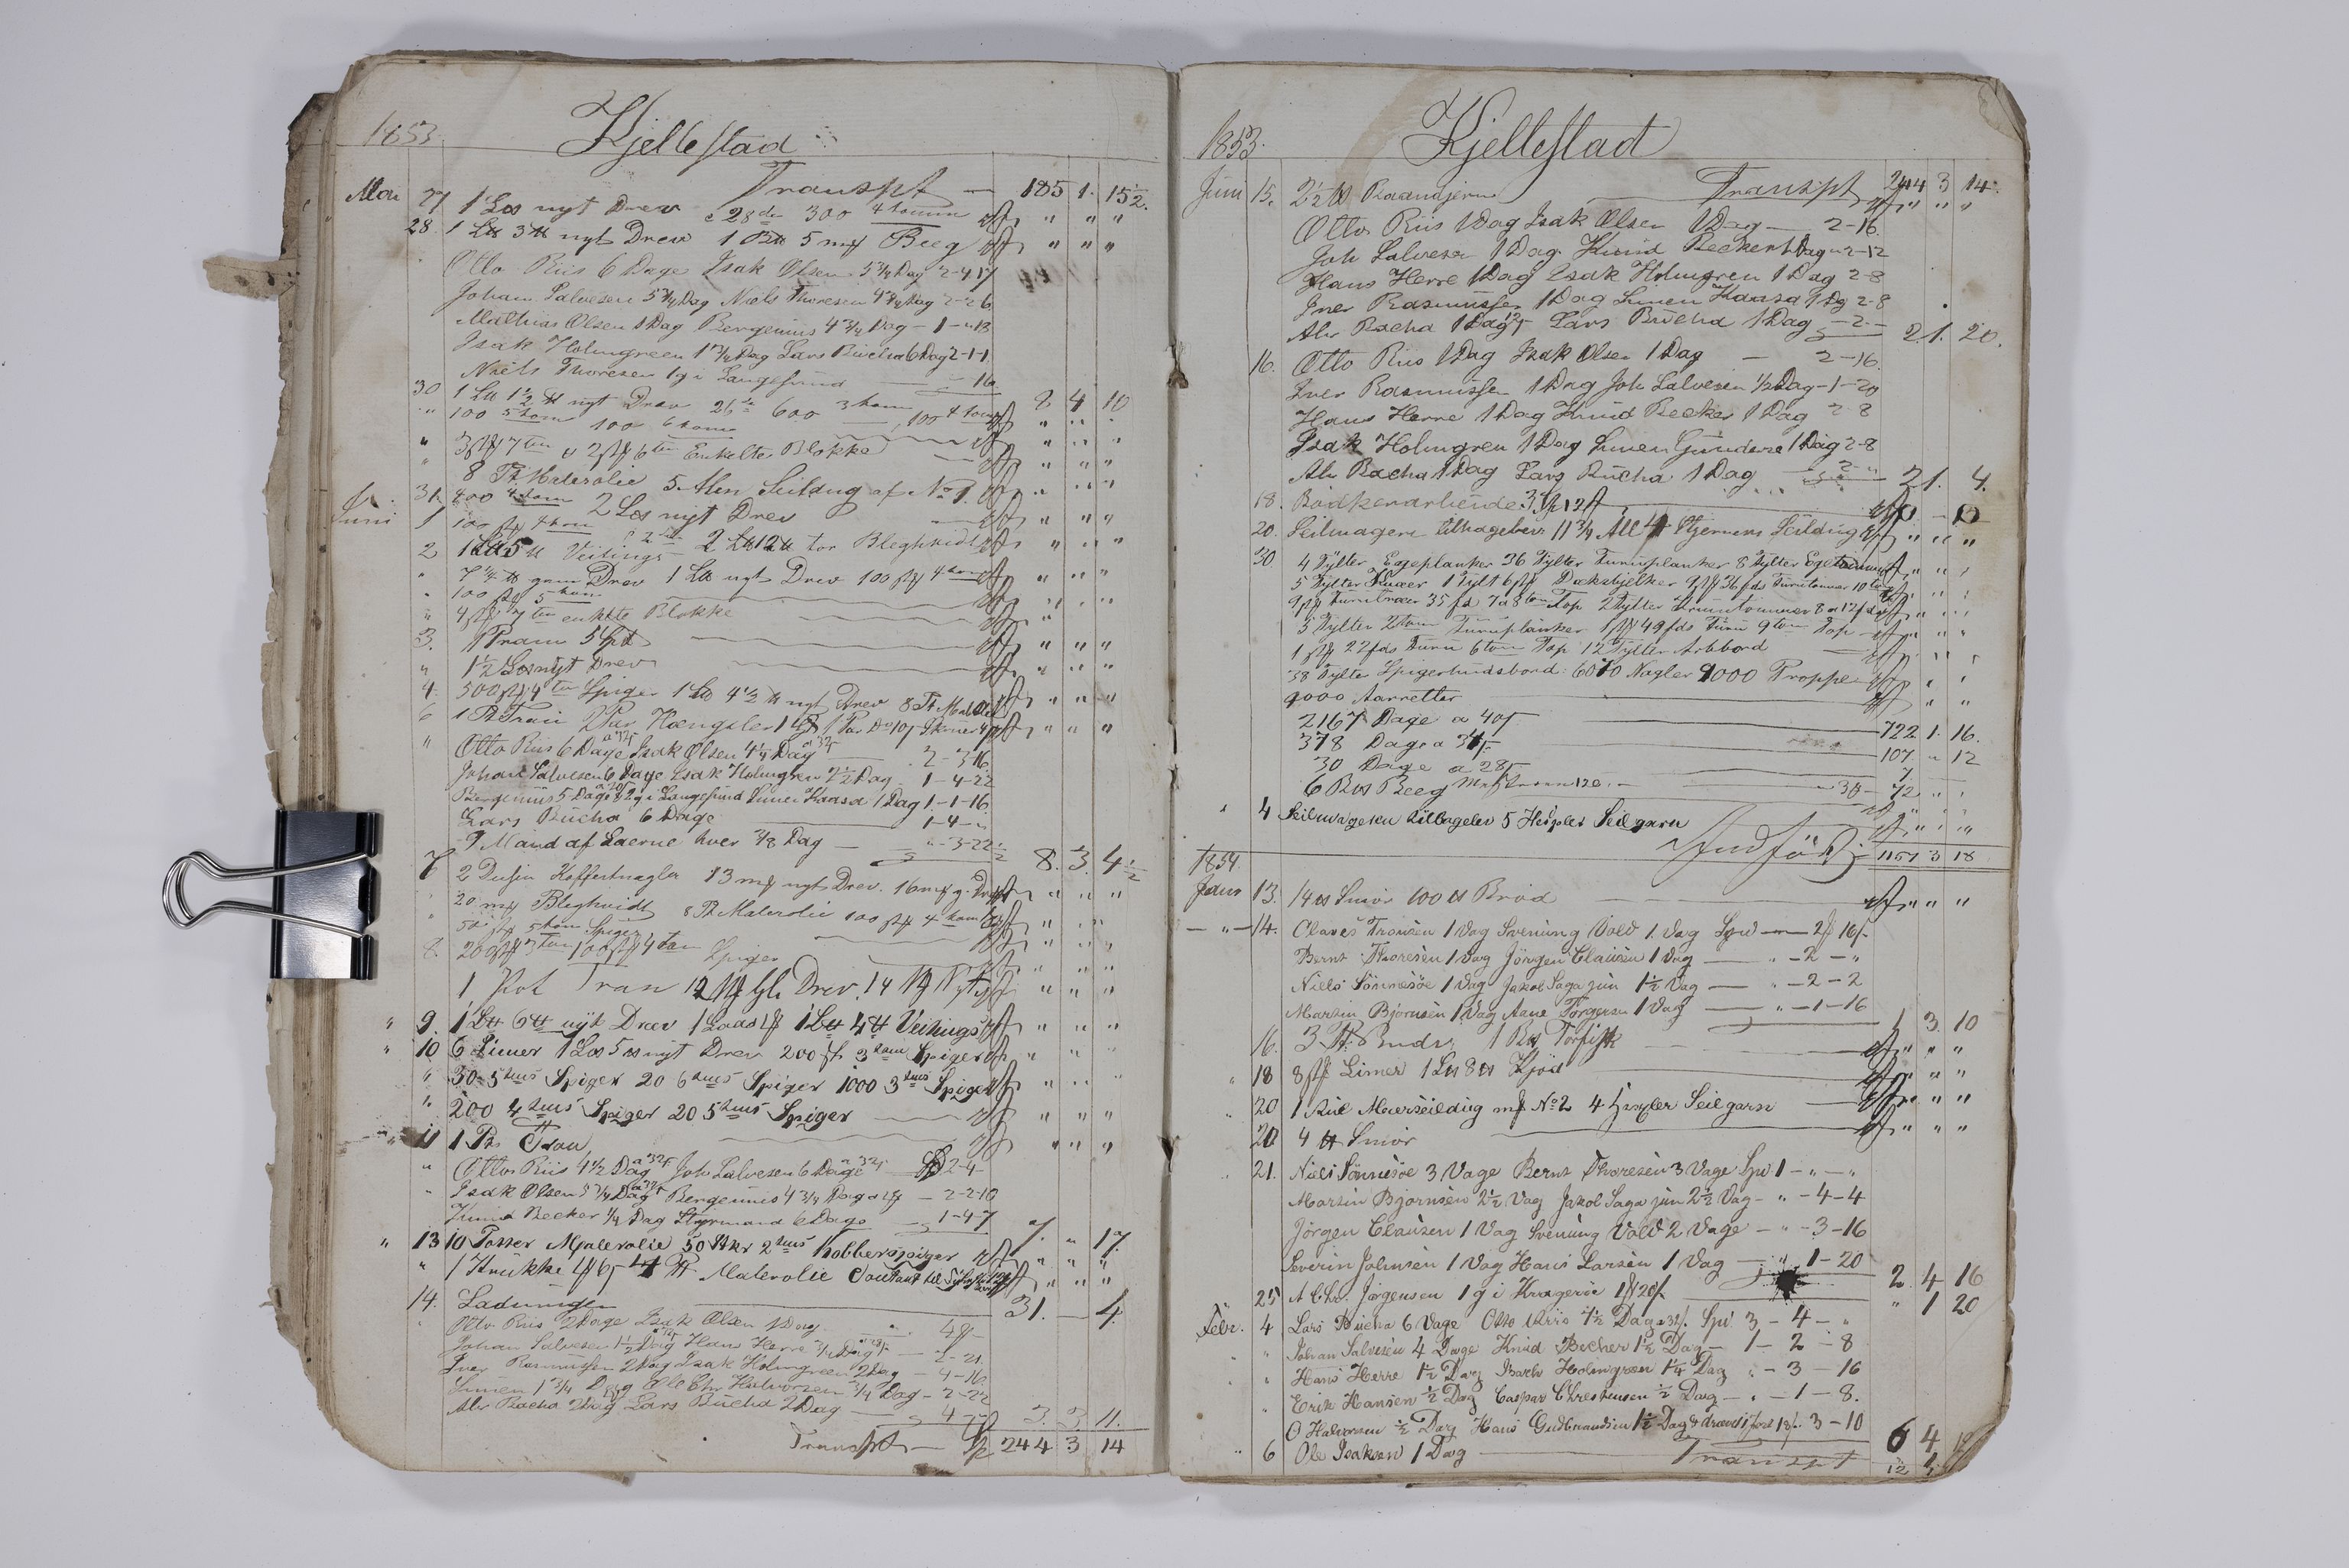 1853. Kjellestad
Transpt — 185 1. 15½.
Mai 27 1 Los nyt Drev 28de 300 4 tomm " " "
28. 1 L℔ 3 ℔ nyt Drev 1 B℔ 5 m℔ Beeg " " "
Otto Riis 6 Dage Isak Olsen 5¾ Dag 2-4-17
Johan Salvesen 5¾ Dag Niels Thoresen 4¾ Dag 2-2-6
Mathias Olsen 1 Dag Bergenius 4¾ Dag - 1 - " 13
Isak Holmgreen 1¾ Dag Lars Bücha 6 Dag 2-1-1
Niels Thoresen 1 g i Langesund — 16
8 4 10
30 1 L℔ 1½ ℔ nyt Drev 26de 600 3 tom 100 4 tom " " "
" 100 5 tom 100 6 tom " " "
" 3 st 7 tm a 2 st 6 tm Enkelte Blokke " " "
" 8 Pt Malerolie 5 Alen Seildug af No 1. " " "
31. 400 4 tom 2 Los nyt Drev " " "
Juni 1 100 st 4 tom " " "
2 1 L℔ 5 ℔ Veilings 2 L℔ 12 ℔ tor Bleghvidt " " "
" 7¼ ℔ gam Drev 1 L℔ nyt Drev 100 st 4 tom " " "
" 100 st 5 tom " " "
" 4 st 7 tm enkelte Blokke " "
3. 1 Pram 5 Spd " " "
" 1½ Los nyt Drev " " "
4. 500 st 4 tm Spiger 1 L℔ 4½ ℔ nyt Drev 8 Pt Malolie " " "
6 1 Pt Tran 2 Par Hængsler 1 Par " " "
" Otto Riis 6 Dage Isak Olsen 4¼ Dag 2-3-16
Johan Salvesen 6 Dage Isak Holmgren 2½ Dag 1-4-22
Bergenius 5 Dage 2 g i Langesund Simen Kaasa 1 Dag 1-1-16
Lars Bücha 6 Dage 1-4-"
9 Mand af Laerne hver ⅜ Dag — "-3-22½
8. 3. 4½
7 2 Dusin Koffertnagler 13 m℔ nyt Drev. 16 m℔ g. Drev " " "
" 20 m℔ Bleghvidt 8 Pt Malerolie 100 st 4 tom " " "
" 50 st 5 tom Spiger " " "
8. 200 st 3 tm 100 st 4 tom Spiger " " "
1 Pot Tran 12 Gl. Drev. 14 Nyt " " "
" 9. 1 L℔ 6 ℔ nyt Drev 1 Laas 1 L℔ 4 ℔ Veilings " " "
" 10 6 Limer 1 Los 5 ℔ nyt Drev 200 st 3 tom Spiger " " "
" 50 5 tms Spiger 20 6 tms Spiger 1000 3 tms Spiger " " "
" 200 4 tms Spiger 20 5 tms Spiger " " "
" 11 1 Pt. Tran " " "
" Otto Riis 4½ Dag Joh Salvesen 6 Dage 2-4
" Isak Olsen 5¾ Dag Bergenius 4¾ Dag - 2-2-10
Knud Becker ¼ Dag Styrmand 6 Dage - 1-4-7
7. " 17.
" 13 10 Potter Malerolie 50 Stkr 2 tms Kobberspiger " " "
" 1 Krukke 4 Pt. Malerolie Contant til " " "
14. Ladningen — 31. — 4.
Otto Riis 2 Dage Isak Olsen 1 Dag
Johan Salvesen 1½ Dag Hans Herre ¾ Dag - 2-21.
Iver Rasmussen 2 Dag Isak Holmgreen 2 Dag - 4-16.
Simen 1¾ Dag Ole Chr Halvorsen ¾ Dag - 2-22
Abr Bacha 2 Dag Lars Bücha 2 Dag - 4
3. 3 11.
Transpt — Sp 244 3 14
1853. Kjellestad
Transpt 244 3 14.
Juni 15. 2½ ℔ Raandjern " " "
Otto Riis 1 Dag Isak Olsen 1 Dag — 2-16.
Joh Salvesen 1 Dag Knud Becker 1 Dag 2-12
Hans Herre 1 Dag Isak Holmgren 1 Dag 2-8
Iver Rasmussen 1 Dag Simen Kaasa 1 Dg 2-8
Abr Bacha 1 Dag Lars Bücha 1 Dag - 2 -
2 1. 20.
16. Otto Riis 1 Dag Isak Olsen 1 Dag — 2-16.
Iver Rasmussen 1 Dag Joh Salvesen ½ Dag - 1-20
Hans Herre 1 Dag Knud Becker 1 Dag 2-8
Isak Holmgren 1 Dag Simen Gundere 1 Dag 2-8
Abr Bacha 1 Dag Lars Bücha 1 Dag — 2 "
2 1. 4.
18. Bödkerarbeide 3 Sp 12
20. Seilmageren tilhageber 11¾ All Stjernens Seildug " " "
30 4 Tylter Egeplanker 36 Tylter Furuplanker 8 Tylter Egetømmer " " "
5 Tylter Knæer 1 Tylt 6 st Dæksbjelker 9 st 36 fds Furutømmer 10 tom " " "
9 st Furutræer 35 fd 7 a 8 tom Top 2 Tylter Krumtømmer 8 a 12 fd " " "
5 Tylter 2 tom Furuplanker 1 st 49 fds Furu 9 tom Top " " "
1 st 22 fds Furu 6 tom Top 12 Tylter Arbbord " " "
38 Tylter Spigerhudsbord 6070 Nagler 9000 Propper " " "
9000 Aarretter " "
2167 Dage a 40 — 722 1. 16.
378 Dage a 34 — 107. " 12
30 Dage a 28 — 7. — —
6 B℔ Beeg — 72 " "
" 4 Seilmageren tilbagelev 5 Hespler Seilgarn " " "
Indført 1151 3 18
1854.
Janr 13. 14 ℔ Smör 100 ℔ Bröd " " "
— " — 14. Claves Tronsen 1 Dag Svenung Vold 1. Dag Spd — 2 16
Bernt Thoresen 1 Dag Jörgen Clausen 1 Dag — " - 2 - "
Niels Sönnesöe 1 Dag Jakob Saga jun 1½ Dag — " - 2 - 2
Martin Bjørnsen 1 Dag Aane Torgersen 1 Dag — " - 1 - 16
1 3. 10
16. 3 Pt. 1 B℔ Törfisk " " "
" 18 8 st Limer 1 L℔ 8 ℔ Kjöd " " "
" 20 1 Rul Maerseildug m No 2 4 Hespler Seilgarn " " "
20 4 ℔ Smör " " "
" 21. Niels Sönnesöe 3 Dage Bernt Thoresen 3 Dage Spd 1 - " - "
Martin Bjørnsen 2½ Dag Jakob Saga jun 2½ Dag - " - 4-4
Jörgen Clausen 1 Dag Svenung Vold 2 Dage - " - 3-16
Severin Johnsen 1 Dag Hans Larsen 1 Dag - " 1-20
2. 4 16
25 A Chr. Jörgensen 1 g i Kragerøe 1 20 — " 1 20
Febr. 4 Lars Bucha 6 Dage Otto Riis 7½ Dag a 32. Spd. 3 - 4 - "
" Johan Salvesen 4 Dage Knud Becher 1½ Dag - 1 - 2 - 8
" Hans Herre 1½ Dag Holmgreen 1¼ Dag " - 3 - 16
" Erik Hansen ½ Dag Caspar Christensen ½ Dag - " - 1 - 8.
O Halvorsen ½ Dag Hans Gudmundsen 1½ Dag 3-10
6 4
" 6 Ole Isaksen 1 Dag
Transpt 12